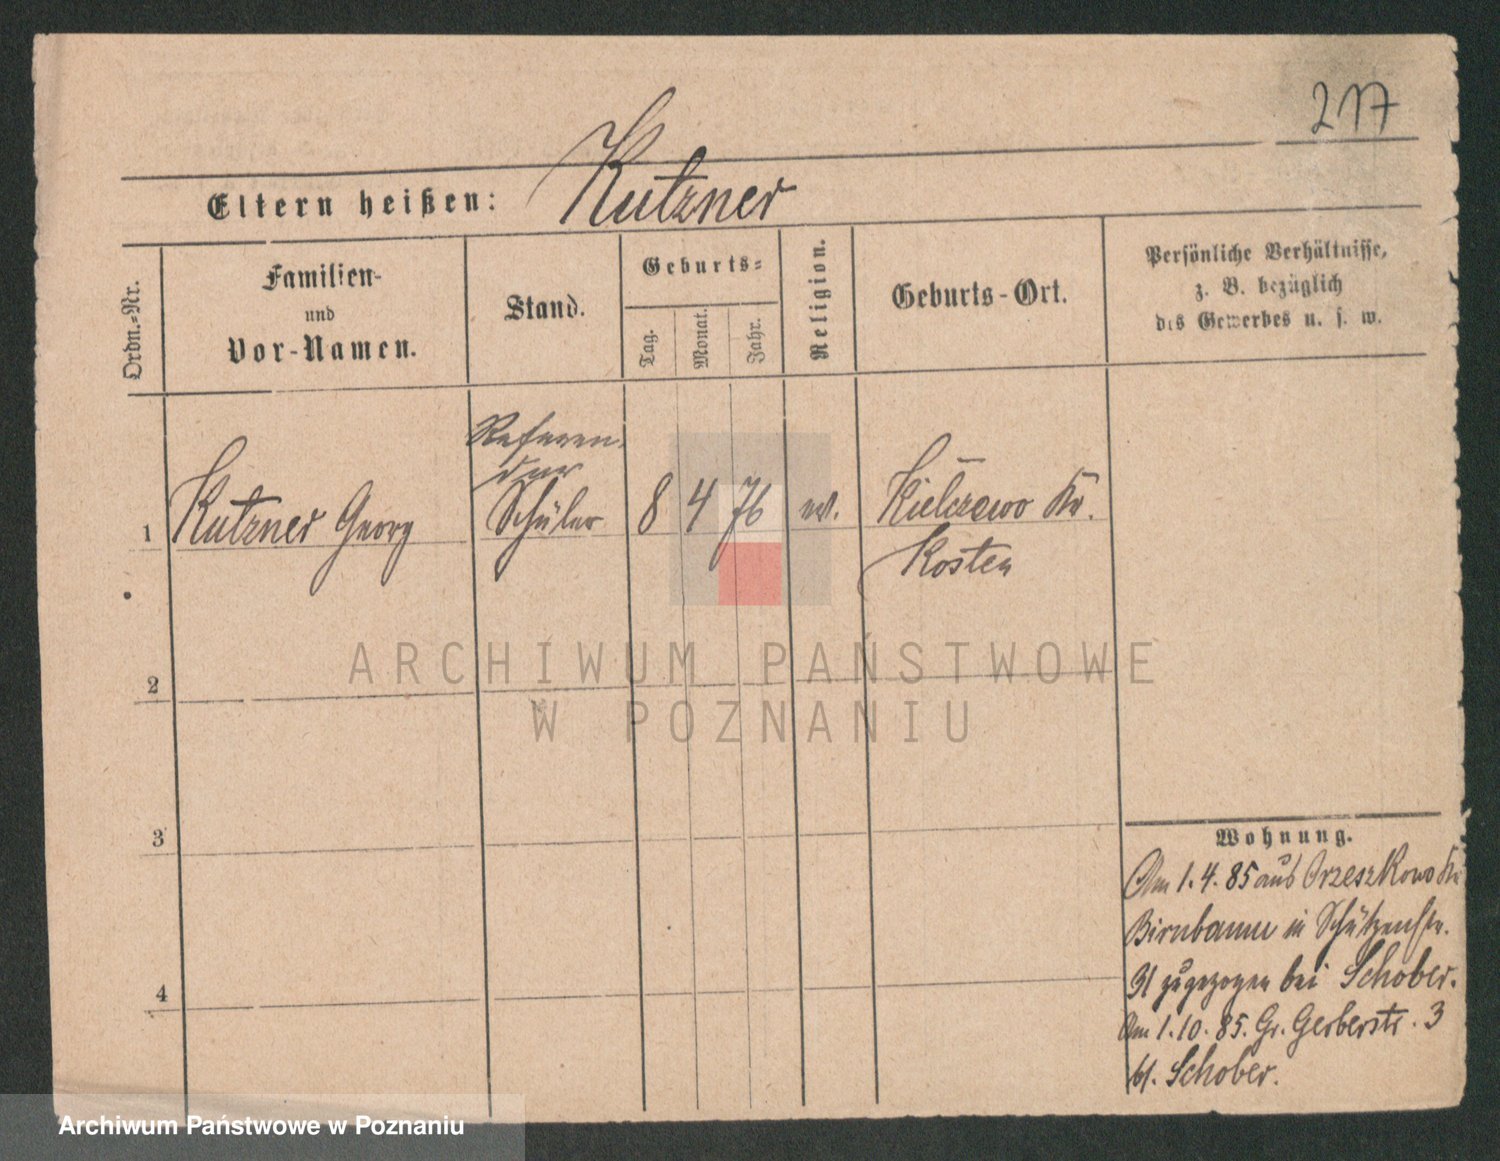 217
Eltern heißen: Kutzner
Ordn.-Nr.
Familien-
und
Vor-Namen.
Stand.
Geburts-
Tag.
Monat.
Jahr.
Religion.
Geburts-Ort.
Persönliche Verhältnisse,
z. B. bezüglich
des Gewerbes u. s. w.
Referen-
dar
1 Kutzner Georg Schüler 8 4 76 ev. Kielczewo Kr.
Kosten
2
3
4
Wohnung.
Am 1.4.85 aus Orzeszkowo Kr
Birnbaum in Schützenstr.
31 zugezogen bei Schober.
Am 1.10.85. Gr. Gerberstr. 3
b/. Schober.
ARCHIWUM PAŃSTWOWE
W POZNANIU
Archiwum Państwowe w Poznaniu